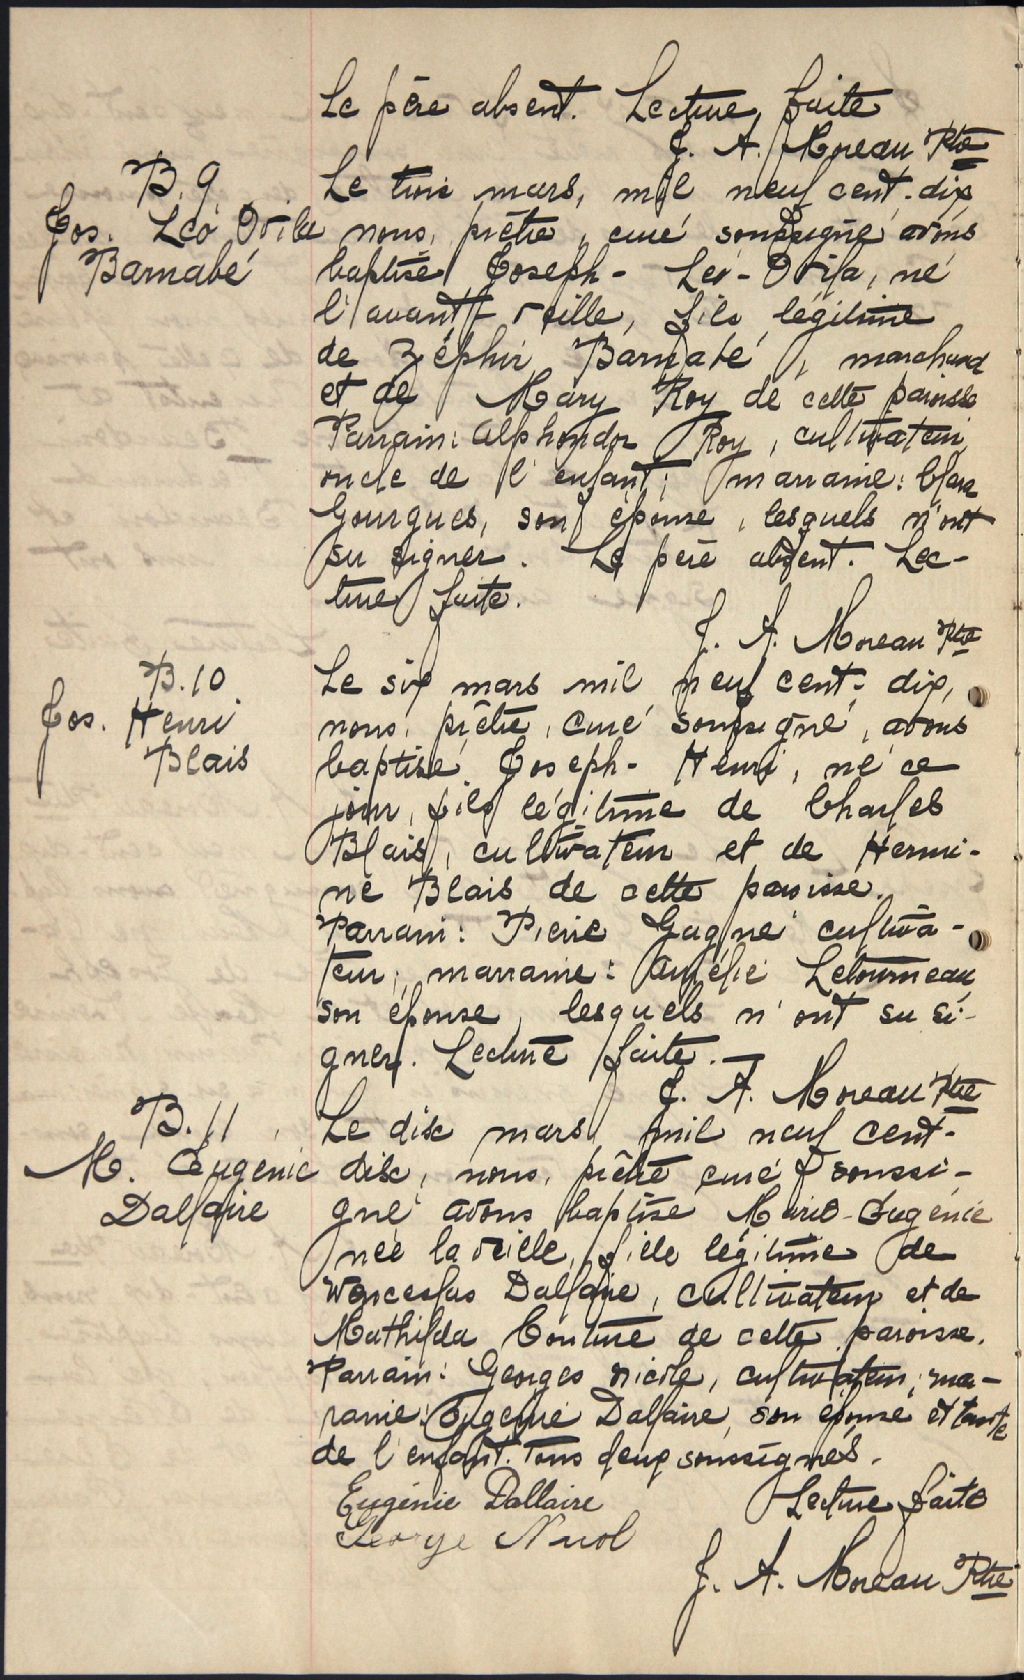 Le père absent. Lecture faite
J. A. Moreau Ptre
B. 9
Jos. Léo Ovila
Barnabé
Le trois mars, mil neuf cent-dix
nous, prêtre, curé soussigné avons
baptisé Joseph-Léo-Ovila, né
l'avant-veille, fils légitime
de Zéphir Barnabé, marchand
et de Mary Roy de cette paroisse
Parrain: Alphondor Roy, cultivateur,
oncle de l'enfant; marraine:
Gourgues, son épouse, lesquels n'ont
su signer. Le père absent. Lec-
ture faite.
J. A. Moreau Ptre
B. 10
Jos. Henri
Blais
Le six mars mil neuf cent-dix,
nous, prêtre, curé soussigné, avons
baptisé Joseph-Henri, né ce
jour, fils légitime de Charles
Blais, cultivateur et de Hermi-
ne Blais de cette paroisse.
Parrain: Pierre Gagné cultiva-
teur; marraine: Aurélie Letourneau
son épouse, lesquels n'ont su si-
gner. Lecture faite.
J. A. Moreau Ptre
B. 11
M. Eugénie
Dallaire
Le dix mars mil neuf cent-
dix, nous, prêtre curé soussi-
gné avons baptisé Marie-Eugénie
née la veille, fille légitime de
Wenceslas Dallaire, cultivateur et de
Mathilda Couture de cette paroisse.
Parrain: Georges Nicole, cultivateur; mar-
raine: Eugénie Dallaire, son épouse et tante
de l'enfant. Tous deux soussignés.
Eugénie Dallaire
Lecture faite
George Nicol
J. A. Moreau Ptre